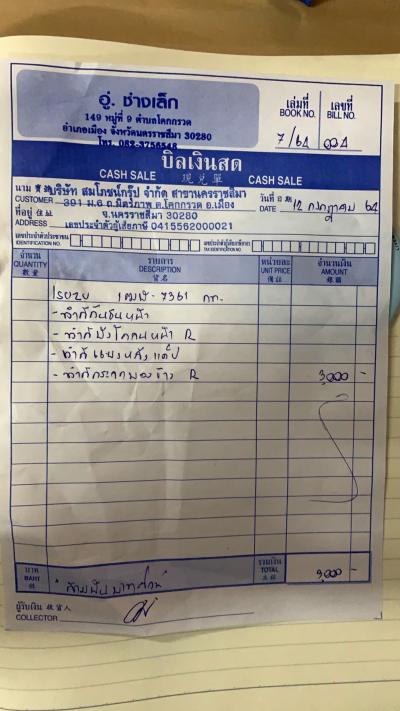 อู่ ช่างเล็ก
149 หมู่ที่ 9 ตำบลโคกกรวด
อำเภอเมือง จังหวัดนครราชสีมา 30280
โทร. 082-3756548
เล่มที่ เลขที่
BOOK NO. BILL NO.
7/64 004
บิลเงินสด
CASH SALE 現兑單 CASH SALE
นาม บริษัท สมโภชน์กรุ๊ป จำกัด สาขานครราชสีมา วันที่
CUSTOMER 391 ม.6 ถ.มิตรภาพ ต.โคกกรวด อ.เมือง DATE 12 กรกฎาคม 64
ที่อยู่ 住址 จ.นครราชสีมา 30280
ADDRESS เลขประจำตัวผู้เสียภาษี 0415562000021
เลขประจำตัวประชาชน เลขประจำตัวผู้เสียภาษีอากร
IDENTIFICATION NO. TAX IDENTIFICATION NO.
จำนวน รายการ หน่วยละ จำนวนเงิน
QUANTITY DESCRIPTION UNIT PRICE AMOUNT
數量 貨名 價銀
ISUZU 7361 กท.
- ทำสีกันชนหน้า
- ทำสีบังโคลนหน้า R
- ทำสี
- ทำสีกระจกมองข้าง R 3,000 -
บาท รวมเงิน
BAHT TOTAL 3,000 -
สามพันบาทถ้วน
ผู้รับเงิน 收貨人
COLLECTOR